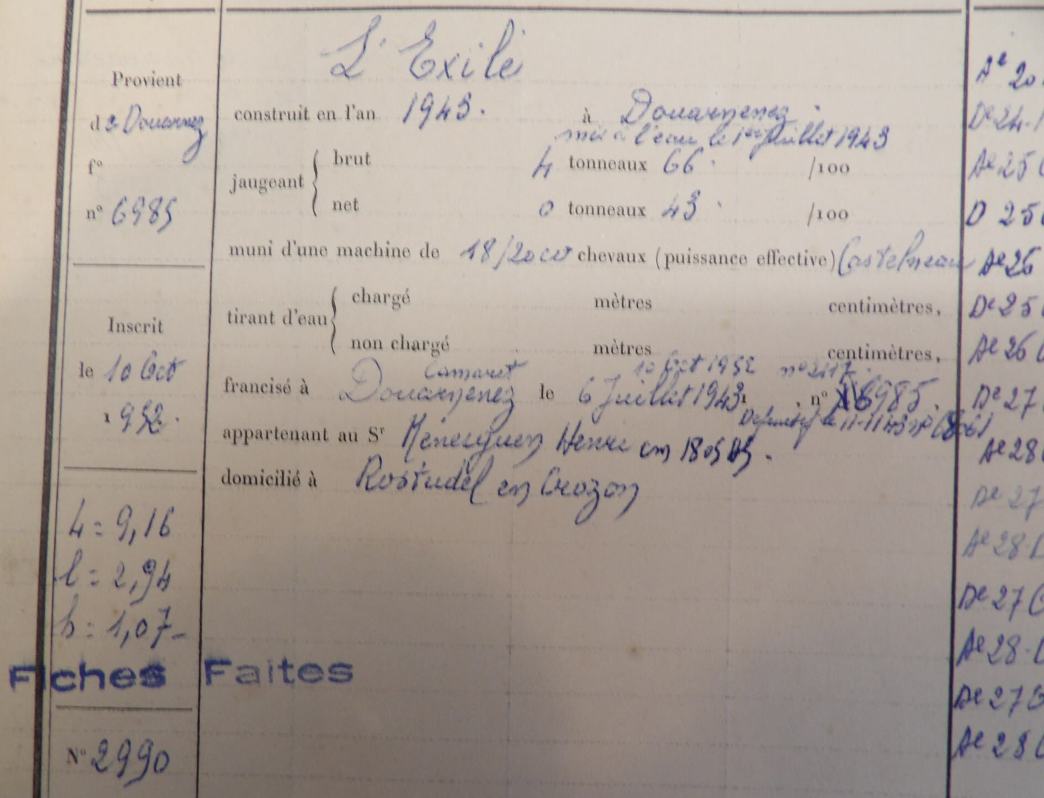 Provient
de Douarnez
f°
n° 6985
Inscrit
le 10 Oct
1952.
L = 9,16
l = 2,94
h = 1,07-
Fiches Faites
N° 2990
L'Exilé
construit en l'an 1943. à Douarnenez.
mis à l'eau le 1er Juillet 1943
jaugeant { brut 4 tonneaux 66 /100
net 0 tonneaux 43 /100
muni d'une machine de 18/20 cv chevaux (puissance effective) Castelneau
tirant d'eau { chargé mètres centimètres,
non chargé mètres centimètres,
Camaret 10 Oct 1952 n° 2117
francisé à Douarnenez le 6 Juillet 1943, n° 6985.
Définitif le 11-11-43 n°
appartenant au Sr Ménesguen Henri
domicilié à Rostudel en Crozon
Ae 20
De 24-1
Ae 25
D 25
Ae 26
De 25
Ae 26
De 27
Ae 28
De 27
Ae 28
De 27
Ae 28
De 27
Ae 28